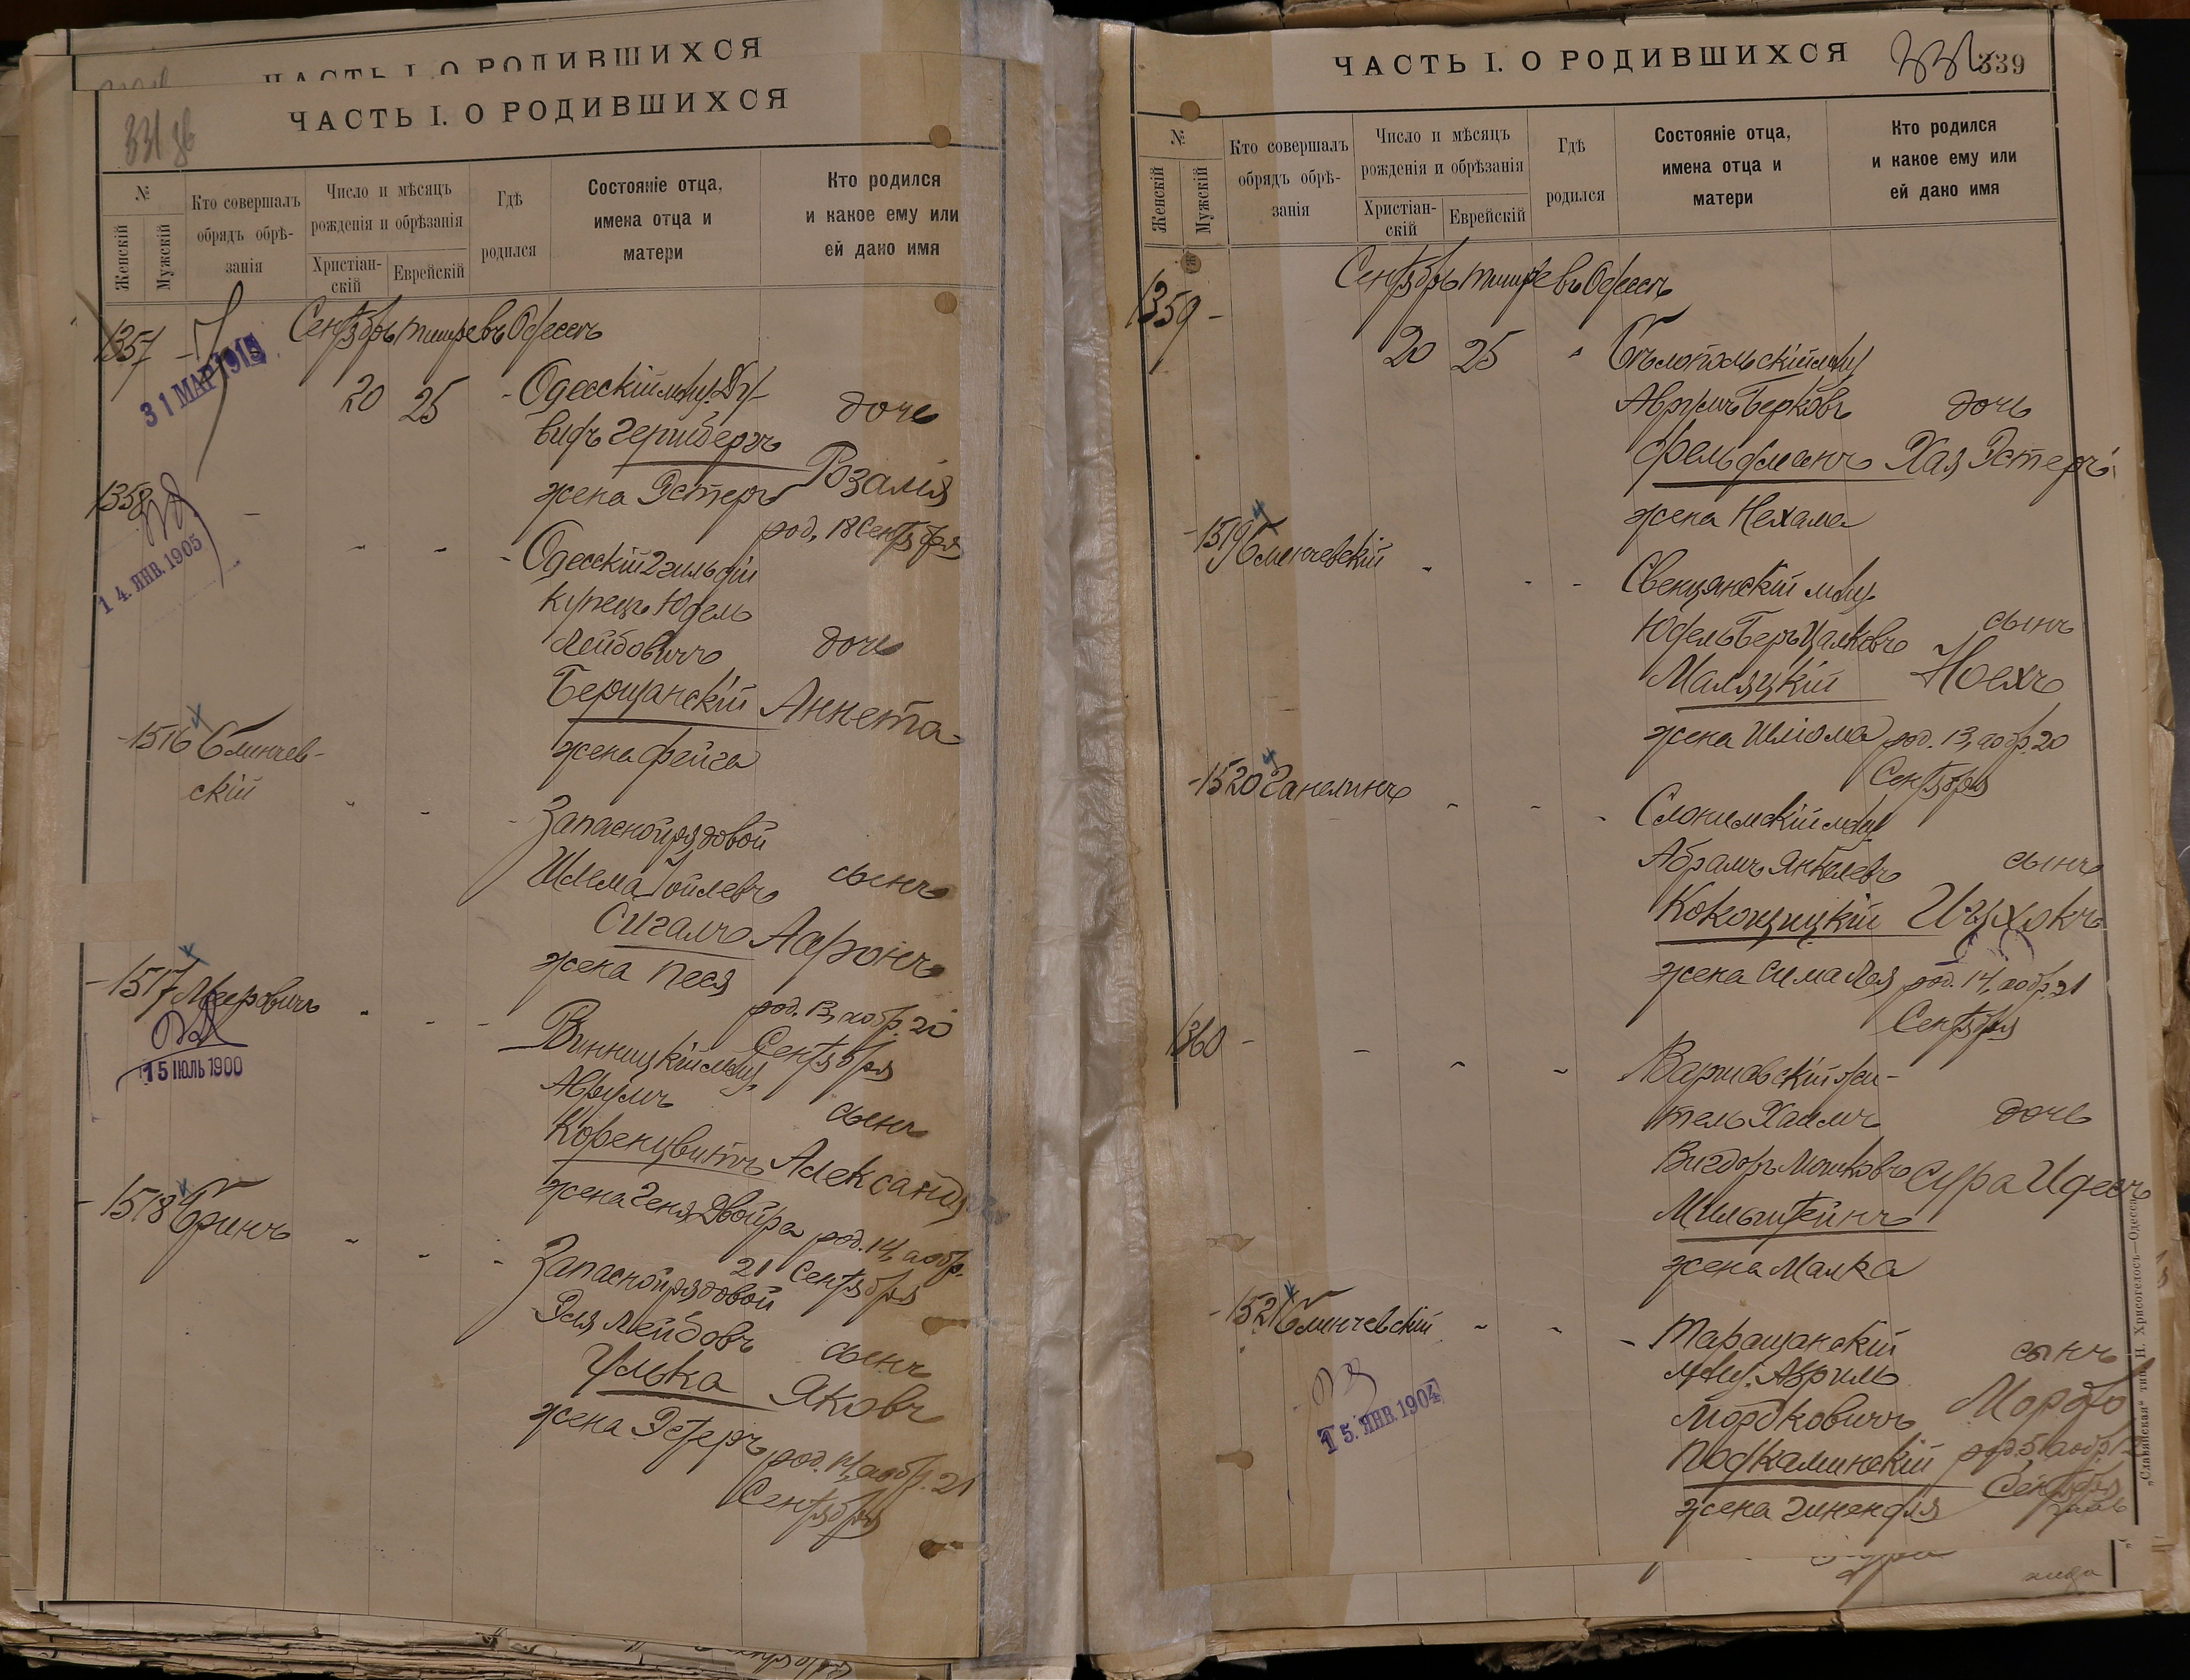 ЧАСТЬ I. О РОДИВШИХСЯ
ЧАСТЬ I. О РОДИВШИХСЯ
№
Женскій
Мужскій
Кто совершалъ
обрядъ обрѣ-
занія
Число и мѣсяцъ
рожденія и обрѣзанія
Христіан-
скій
Еврейскій
Гдѣ
родился
Состояніе отца,
имена отца и
матери
Кто родился
и какое ему или
ей дано имя
Сентябрь тишре въ Одессѣ
1357 -
31 МАР
20 25 - Одесскій мѣщ. Ду-
видъ Геришбергъ дочь
жена Эстеръ Розалія
род. 18 Сентября
1358 -
14. ЯНВ. 1905
- Одесскій 2 гильдіи
купецъ Юдель
Лейбовичъ дочь
Берщанскій Аннета
жена Фейга
-1516 Блинчев-
скій
Запасной рядовой
Шлема Іойлевъ сынъ
Сигалъ Ааронъ
жена Песя
род. 13, а обр. 20
Сентября
-1517 Мееровичъ
15 ІЮЛЬ 1900
Винницкій мѣщ.
Аврумъ сынъ
Коренцвитъ Александръ
жена Геня Двойра род. 14, а обр.
21 Сентября
-1518 Бринъ
Запасной рядовой
Эля Лейбовъ сынъ
Улька Яковъ
жена Эстеръ род. 14, а обр. 21
Сентября
ЧАСТЬ I. О РОДИВШИХСЯ
339
№
Женскій
Мужскій
Кто совершалъ
обрядъ обрѣ-
занія
Число и мѣсяцъ
рожденія и обрѣзанія
Христіан-
скій
Еврейскій
Гдѣ
родился
Состояніе отца,
имена отца и
матери
Кто родился
и какое ему или
ей дано имя
Сентябрь тишре въ Одессѣ
1359 -
20 25 " Бѣлопольскій мѣщ.
Аврумъ Берковъ дочь
Фельдманъ Хая Эстеръ
жена Нехама
-1519 Блинчевскій
Свенцянскій мѣщ.
Юдель Беръ Цалковъ сынъ
Маляцкій Ноехъ
жена Шліома род. 13, а обр. 20
Сентября
-1520 Ганелинъ
Слонимскій мѣщ.
Абрамъ Янкелевъ сынъ
Кокощицкій Ицхокъ
жена Сима Лея род. 14, а обр. 21
Сентября
1360 -
Варшавскій жи-
тель Хаимъ дочь
Вигдоръ Мошковъ Сура Идесъ
Мильштейнъ
жена Малка
-1521 Блинчевскій
15. ЯНВ. 1904
- Таращанскій сынъ
мѣщ. Авриль
Мордковичъ Мордко
Подкаминскій род. 5, а обр. 12
жена Гинендля Сентября
„Славянская“ тип. Н. Хрисогелосъ—Одесса